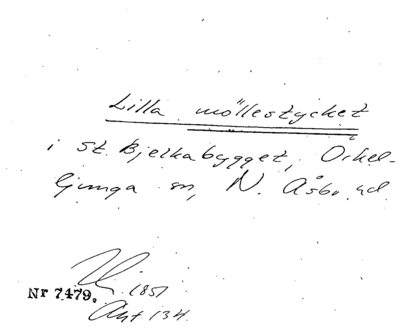 Lilla möllestycket
i st. Bjelkabygget, Örkel-
ljunga sn, N. Åsbo hd.
1851
Nr 7479.
Akt 134.